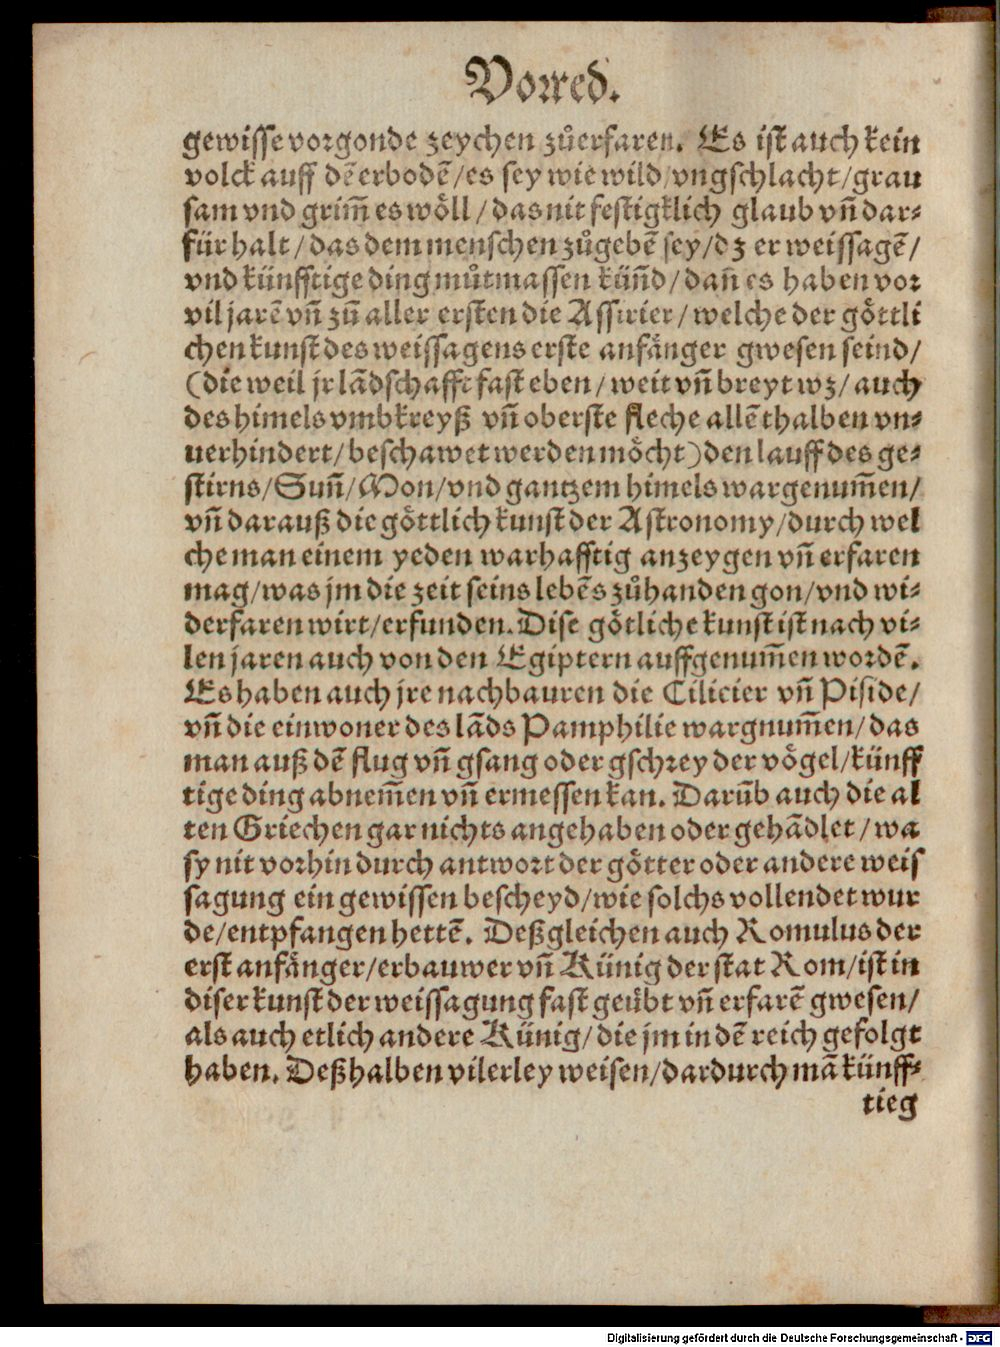 Vorred.
gewisse vorgonde zeychen zůerfaren. Es ist auch kein
volck auff dẽ erbodẽ/es sey wie wild/vngschlacht/grau
sam vnd grim̃ es wöll/das nit festigklich glaub vñ dar⸗
für halt/das dem menschen zůgebẽ sey/dz er weissagẽ/
vnd künfftige ding můtmassen küñd/dañ es haben vor
vil jarẽ vñ zũ aller ersten die Assirier/welche der göttli
chen kunst des weissagens erste anfänger gwesen seind/
(die weil jr lãdschafft fast eben/weit vñ breyt wz/auch
des himels vmbkreyß vñ oberste fleche allẽthalben vn⸗
uerhindert/beschawet werden möcht)den lauff des ge⸗
stirns/Suñ/Mon/vnd gantzem himels wargenum̃en/
vñ darauß die göttlich kunst der Astronomy/durch wel
che man einem yeden warhafftig anzeygen vñ erfaren
mag/was jm die zeit seins lebẽs zůhanden gon/vnd wi⸗
derfaren wirt/erfunden. Dise götliche kunst ist nach vi⸗
len jaren auch von den Egiptern auffgenum̃en wordẽ.
Es haben auch jre nachbauren die Cilicier vñ Piside/
vñ die einwoner des lãds Pamphilie wargnum̃en/das
man auß dẽ flug vñ gsang oder gschrey der vögel/künff
tige ding abnem̃en vñ ermessen kan. Darũb auch die al
ten Griechen gar nichts angehaben oder gehãdlet/wa
sy nit vorhin durch antwort der götter oder andere weis
sagung ein gewissen bescheyd/wie solchs vollendet wur
de/entpfangen hettẽ. Deßgleichen auch Romulus der
erst anfänger/erbauwer vñ Künig der stat Rom/ist in
diser kunst der weissagung fast geübt vñ erfarẽ gwesen/
als auch etlich andere Künig/die jm in dẽ reich gefolgt
haben. Deßhalben vilerley weisen/dardurch mã künff⸗
tieg
Digitalisierung gefördert durch die Deutsche Forschungsgemeinschaft - DFG